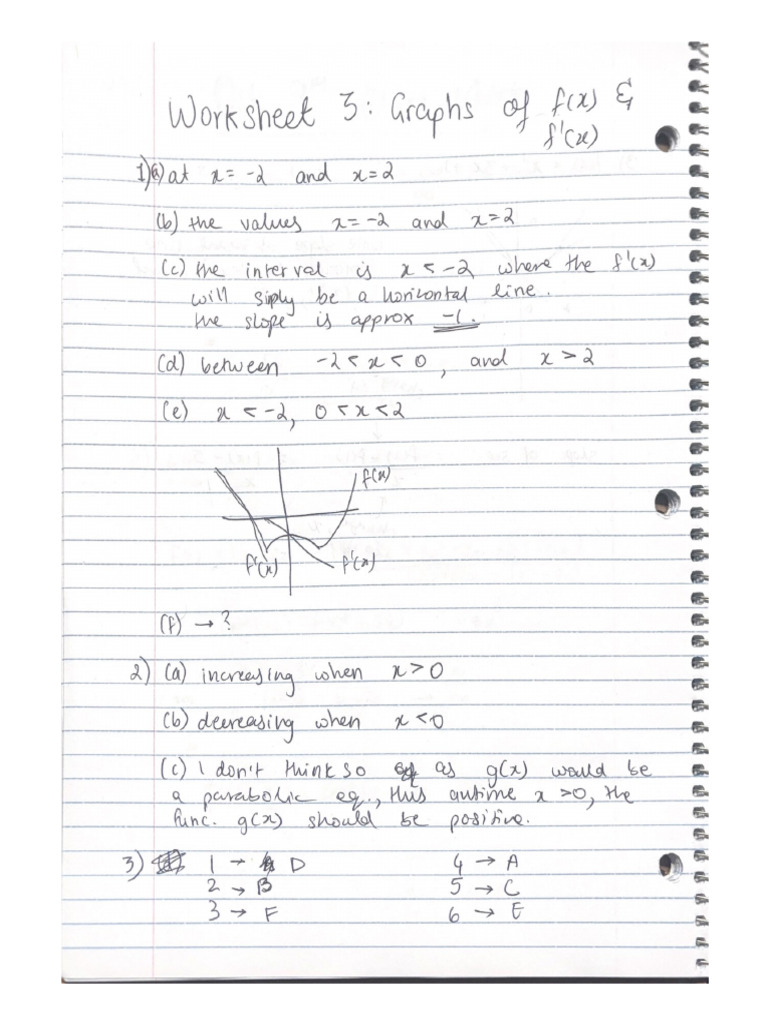 Worksheet 3: Graphs of f(x) &
f'(x)
1)(a) at x = -2 and x = 2
(b) the values x = -2 and x = 2
(c) the interval is x < -2 where the f'(x)
will siply be a horizontal line.
the slope is approx -1.
(d) between -2 < x < 0, and x > 2
(e) x < -2, 0 < x < 2
f(x)
f'(x) f'(x)
(f) → ?
2) (a) increasing when x > 0
(b) decreasing when x < 0
(c) I don't think so as g(x) would be
a parabolic eq., this x > 0, the
func. g(x) should be positive.
3) 1 → D 4 → A
2 → B 5 → C
3 → F 6 → E